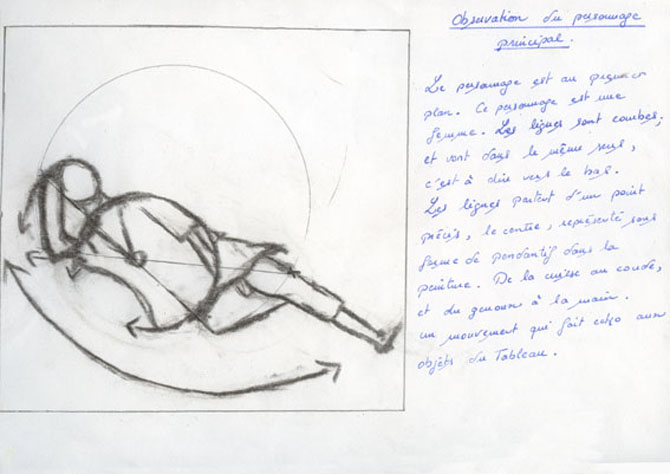 Observation du personnage
principal.
Le personnage est au premier
plan. Ce personnage est une
femme. Les lignes sont courbes,
et vont dans le même sens,
c'est à dire vers le bas.
Les lignes partent d'un point
précis, le centre, représenté sous
forme de pendentif dans la
peinture. De la cuisse au coude,
et du genoux à la main.
un mouvement qui fait écho aux
objets du Tableau.